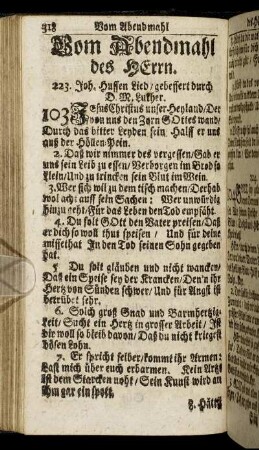 318 Vom Abendmahl
Vom Abendmahl
des HErrn.
223. Joh. Hussen Lied/gebessert durch
D. M. Luther.
103 JEsus Christus unser Heyland/Der
von uns den Zorn GOttes wand/
Durch das bitter Leyden sein Halff er uns
aus der Höllen-Pein.
2. Daß wir nimmer des vergessen/Gab er
uns sein Leib zu essen/Verborgen im Brod so
klein/Und zu trincken sein Blut im Wein.
3. Wer sich wil zu dem tisch machen/Der hab
wol acht auff sein Sachen: Wer unwürdig
hinzu geht/Für das Leben den Tod empfäht.
4. Du solt GOtt den Vater preisen/Daß
er dich so woll thut speisen/Und für deine
missethat In den Tod seinen Sohn gegeben
hat.
Du solt gläuben und nicht wancken/
Daß ein Speise sey der Krancken/Den'n ihr
Hertz von Sünden schwer/Und für Angst ist
betrübet sehr.
6. Solch groß Gnad und Barmhertzig-
keit/Sucht ein Hertz in grosser Arbeit/Ist
dir woll so bleib davon/Daß du nicht kriegest
bösen Lohn.
7. Er spricht selber/kommt ihr Armen:
Last mich über euch erbarmen. Kein Artzt
ist dem Starcken noht/Sein Kunst wird an
ihm gar ein spott.
8. Hätt